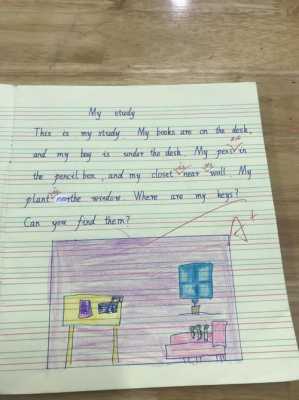 My study
This is my study. My books are on the desk,
and my bag is under the desk. My pen is in
the pencil box, and my closet is near wall. My
plant is near the window. Where are my keys?
Can you find them?
A+